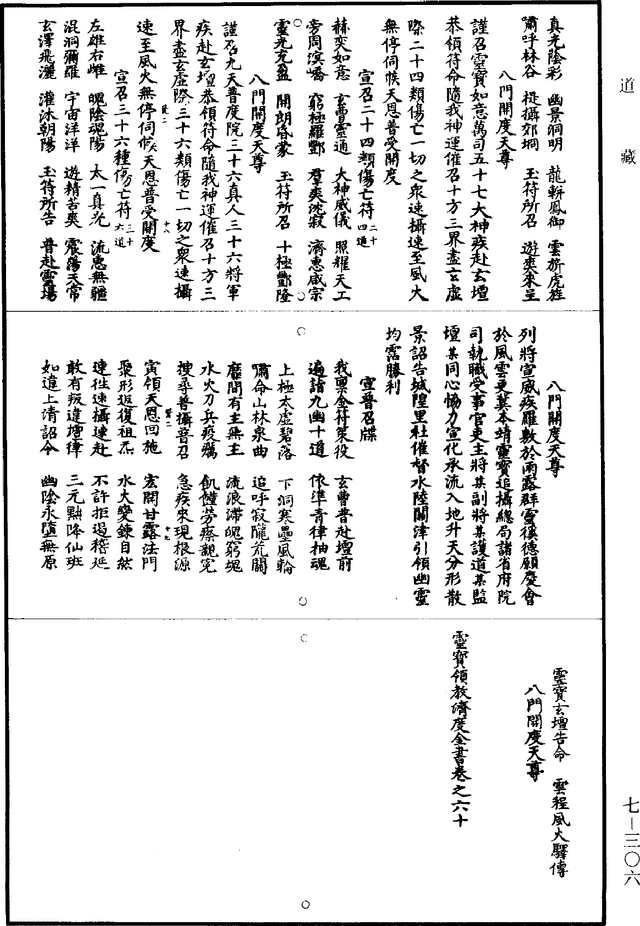 道藏
真光陰彩　幽景洞明　龍軿鳳御　雲旂虎旌
嘯呼林谷　提攝郊坰　玉符所召　遊爽來呈
八門開度天尊
謹召靈寶如意萬司五十七大神疾赴玄壇
恭領符命隨我神運催召十方三界盡玄虛
際二十四類傷亡一切之眾速攝速至風火
無停伺候天恩普受開度
宣召二十四類傷亡符二十四道
赫奕如意　玄曹靈通　大神威儀　照耀天工
旁周溟嶓　窮極羅酆　羣爽沈寂　濟惠咸宗
靈光充盈　開朗昏蒙　玉符所召　十極酆隆
八門開度天尊
謹召九天普度院三十六真人三十六將軍
疾赴玄壇恭領符命隨我神運催召十方三
界盡玄虛際三十六類傷亡一切之眾速攝
速至風火無停伺候天恩普受開度
宣召三十六種傷亡符三十六道
左雄右雌　魄陰魂陽　太一真光　流惠無疆
混洞彌羅　宇宙洋洋　遊精苦爽　震蕩天常
玄澤飛灑　灌沐朝陽　玉符所告　普赴靈場
八門開度天尊
列將宣威疾羅數於雨露群靈徯德願慶會
於風雲更冀本靖靈寶追攝總局諸省府院
司執職受事官吏主將某副將某護道某監
壇某同心恊力宣化承流入地升天分形散
景詔告城隍里社催督水陸關津引領幽靈
均霑勝利
宣普召牒
我禀金符策役　玄曹普赴壇前
遍詣九幽十道　依準青律抽魂
上極太虛碧落　下洞寒壘風輪
嘯命山林泉曲　追呼寂隴荒關
塵間有主無主　流浪滯魄窮魂
水火刀兵疫癘　飢饉勞瘵親冤
搜尋普攝普召　急疾來現根源
寅領天恩回施　宏開甘露法門
聚形返復祖炁　水火變鍊自然
速往速攝速赴　不許拒遏稽延
敢有叛違壇律　三元黜降仙班
如違上清詔令　幽陰永墮無原
靈寶玄壇告命　雲程風火驛傳
八門開度天尊
靈寶領教濟度金書卷之六十
七－三〇六